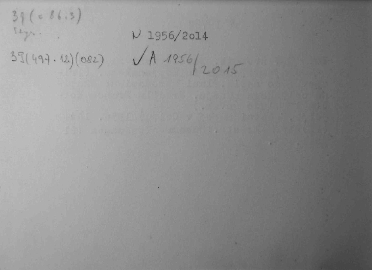 39(086.3)
N 1956/2014
39(497.12)(082)
✓ A 1956/2015